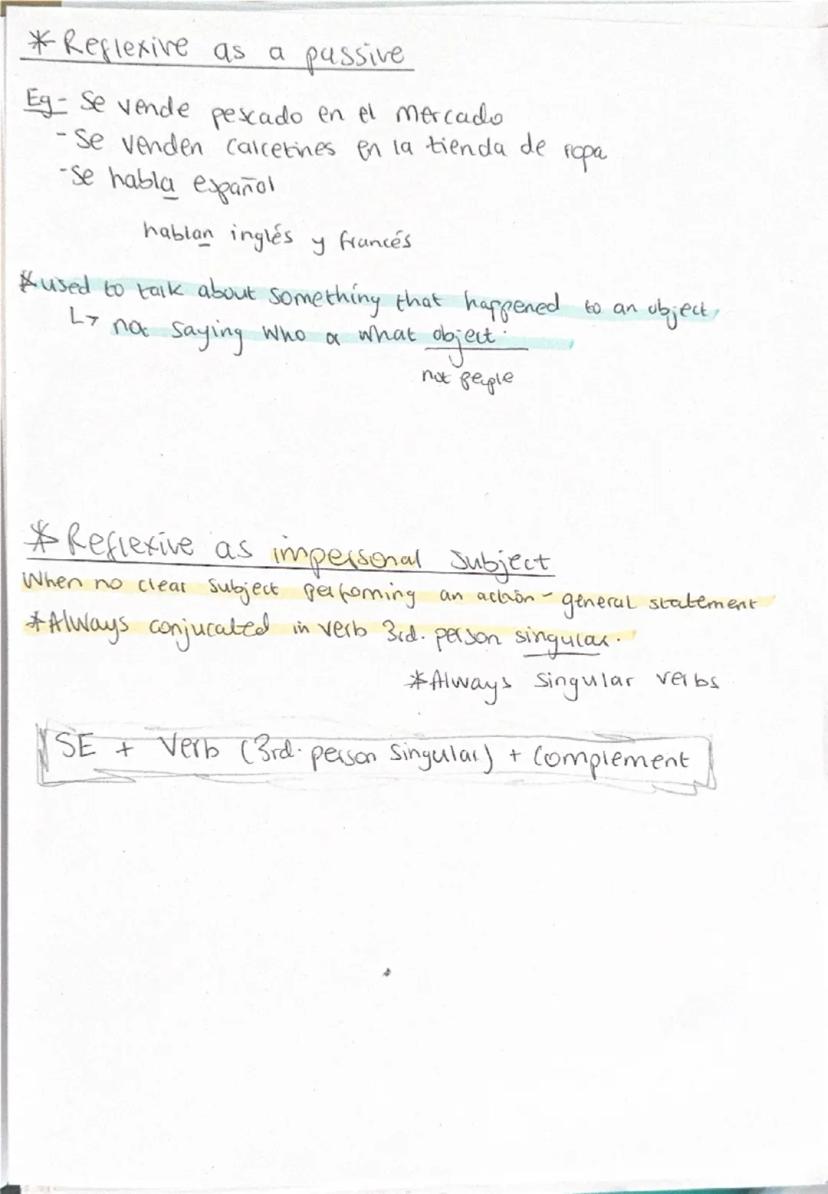 * Reflexive as a passive
Eg - Se vende pescado en el mercado
- Se venden calcetines en la tienda de ropa
- Se habla español
hablan inglés y francés
* used to talk about something that happened to an object,
↳ not saying who or what object.
not people
* Reflexive as impersonal subject
When no clear subject performing an action - general statement
* Always conjucated in verb 3rd. person singular.
* Always singular verbs
SE + Verb (3rd. person singular) + complement